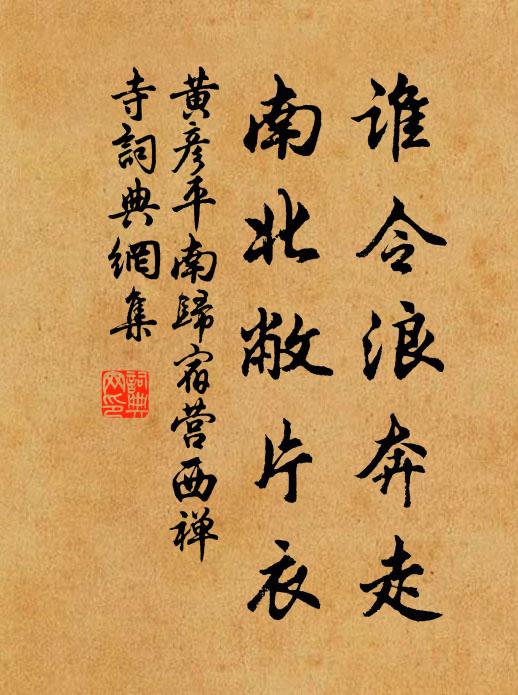 谁令浪奔走
南北敝片衣
黄彦平南歸宿营西禅
寺詞典網集
詞典网印